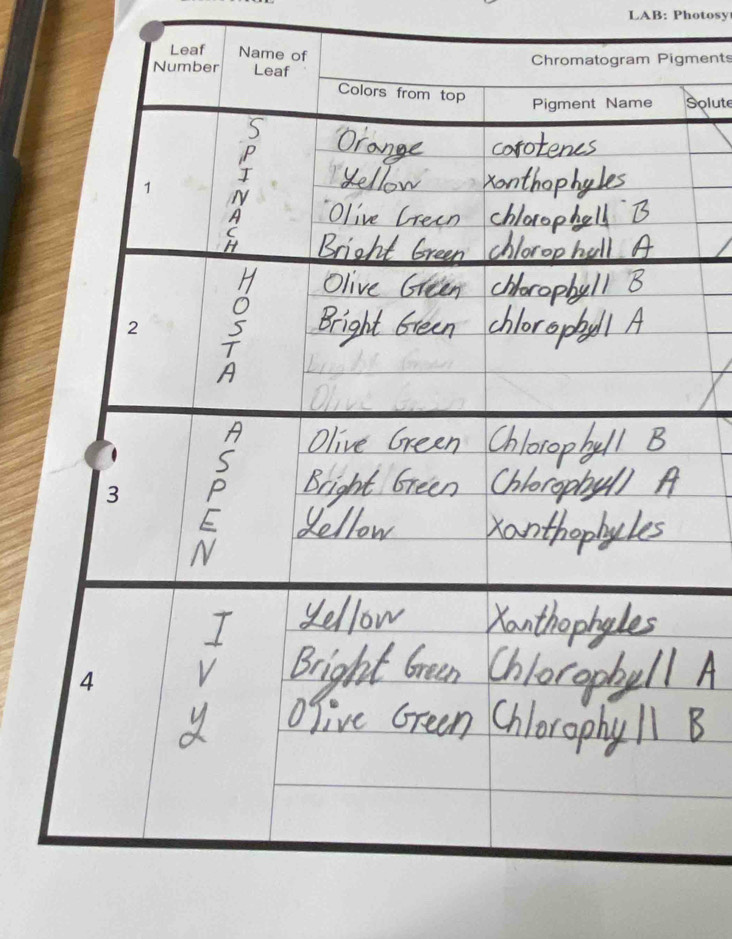 LAB: Photosy
Leaf Number Name of Leaf Chromatogram Pigments
Colors from top Pigment Name Solute
1 SPINACH Orange carotenes
Yellow Xanthophyles
Olive Green chlorophyll B
Bright Green chlorophyll A
2 HOSTA Olive Green chlorophyll B
Bright Green chlorophyll A
bright Green
Olive Green
3 ASPEN Olive Green Chlorophyll B
Bright Green Chlorophyll A
Yellow Xanthophyles
4 IVY Yellow Xanthophyles
Bright Green Chlorophyll A
Olive Green Chlorophyll B